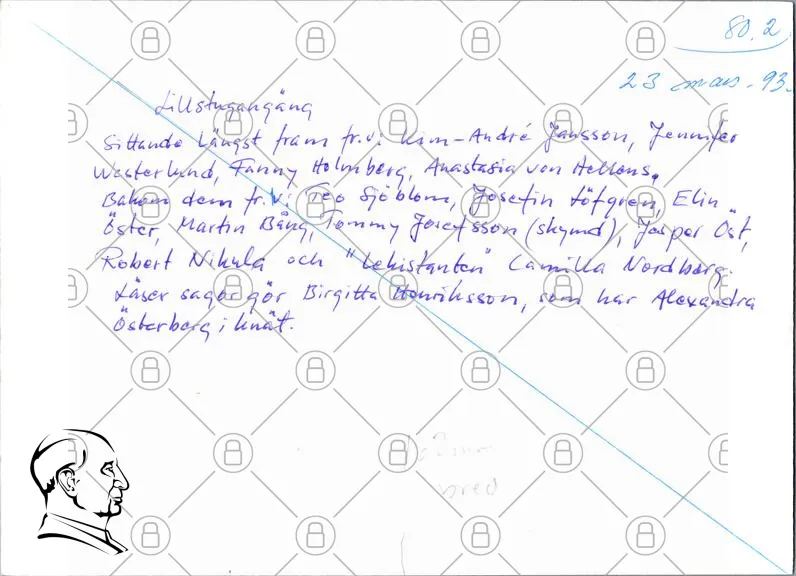 80.2
23 mars. 93.
Lillstugangäng
Sittande längst fram fr.v: Kim-André Jansson, Jennifer
Westerlund, Fanny Holmberg, Anastasia von Hellens.
Bakom dem fr.v: Teo Sjöblom, Josefin Löfgren, Elin
Öster, Martin Bång, Tommy Josefsson (skymd), Jesper Öst,
Robert Nikula och "lekistanten" Camilla Nordberg.
Läser sagor gör Birgitta Henriksson, som har Alexandra
Österberg i knät.
bred